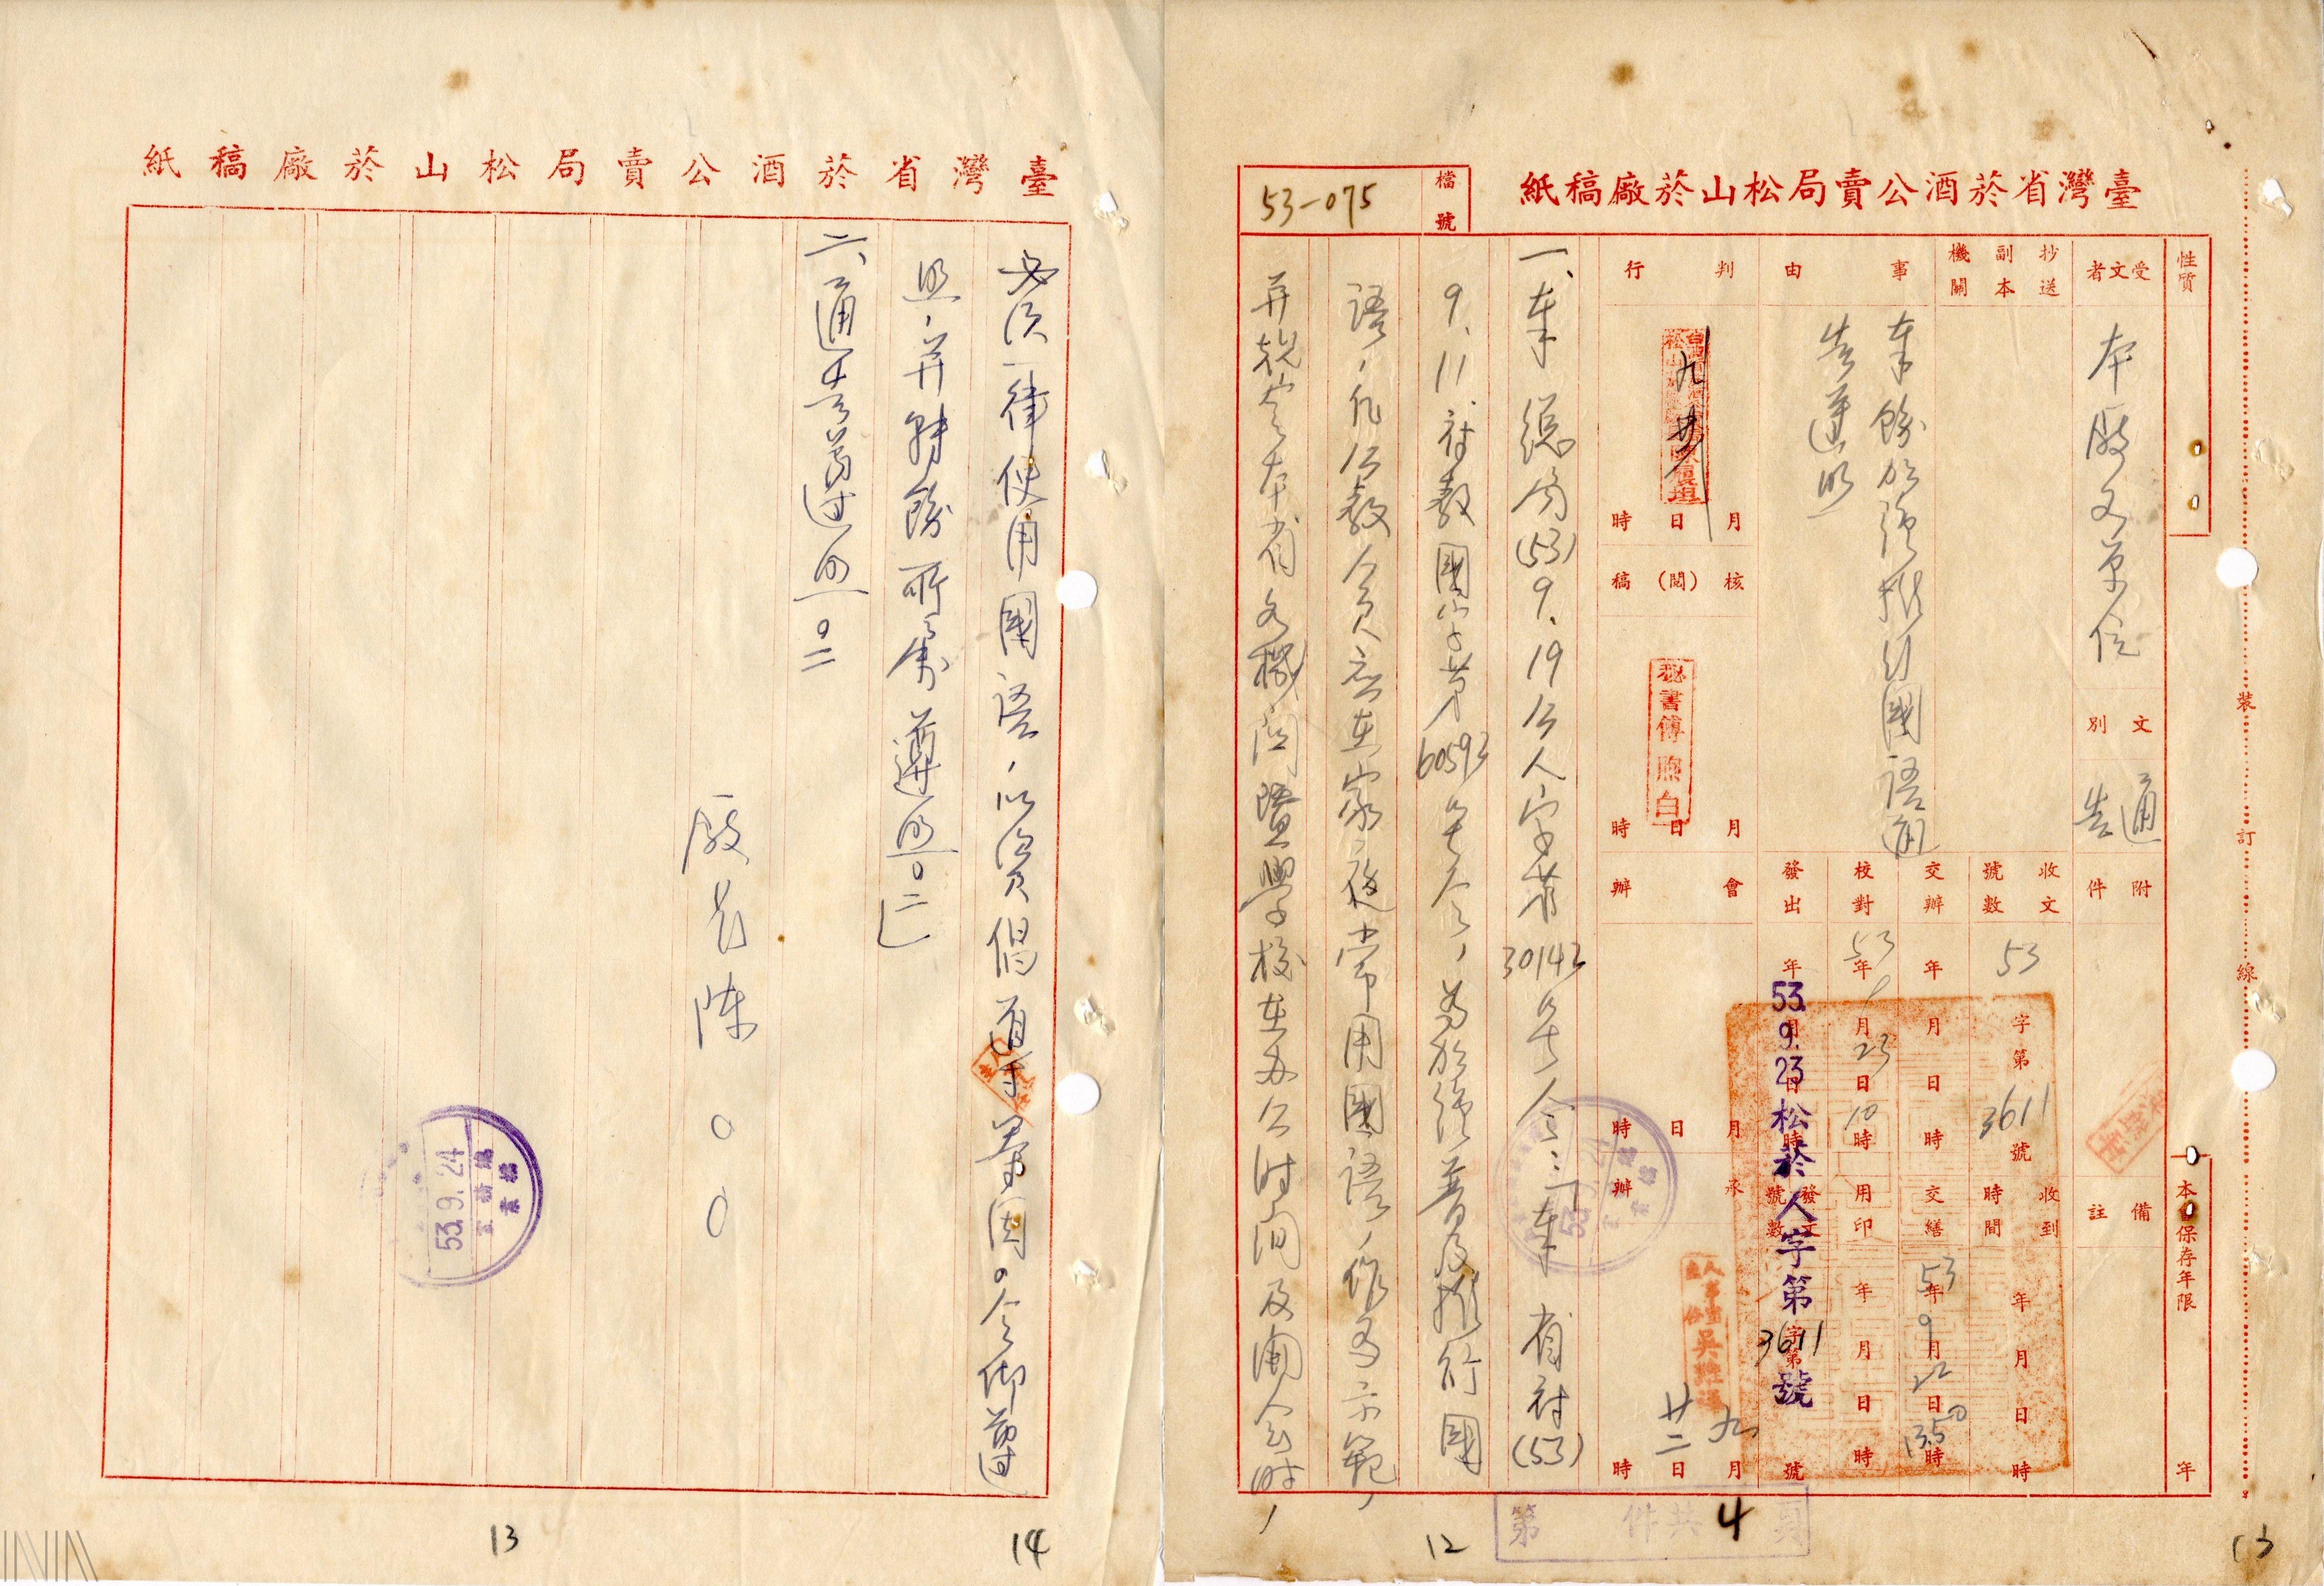 臺灣省菸酒公賣局松山菸廠稿紙
檔號
53-075
性質
受文者
本廠各單位
文別
通告
附件
備註
本 保存年限
年
抄送副本機關
事由
奉飭加強推行國語通
告遵照
判行
月日時
核(閱)稿
秘書傅
月日時
會辦
月日時
承辦
九
廿二
月日時
收文號數
53
字第3611號
收到時間
年月日時
交辦
年月日時
交繕
53年9月22日13.50時
校對
53年9月23日10時
用印
年月日時
發出
年月日時
發文號數
字第號
53.9.23松菸人字第3611號
一、奉 總局(53)9.19公人字第30143號令:「奉 省府(53)
9.11.府教國字第60593號令,為加強普及推行國
語,凡公教人員應在家庭常用國語,作為示範,
并規定本省各機關暨學校在办公時間及開會時,
第 件共4頁
裝訂線
12
13
臺灣省菸酒公賣局松山菸廠稿紙
必須一律使用國語,以資倡導等因。令仰遵
照,并轉飭所屬遵照。」
二、通告遵照。
廠長陳〇〇
檔案
53.9.24
13
14